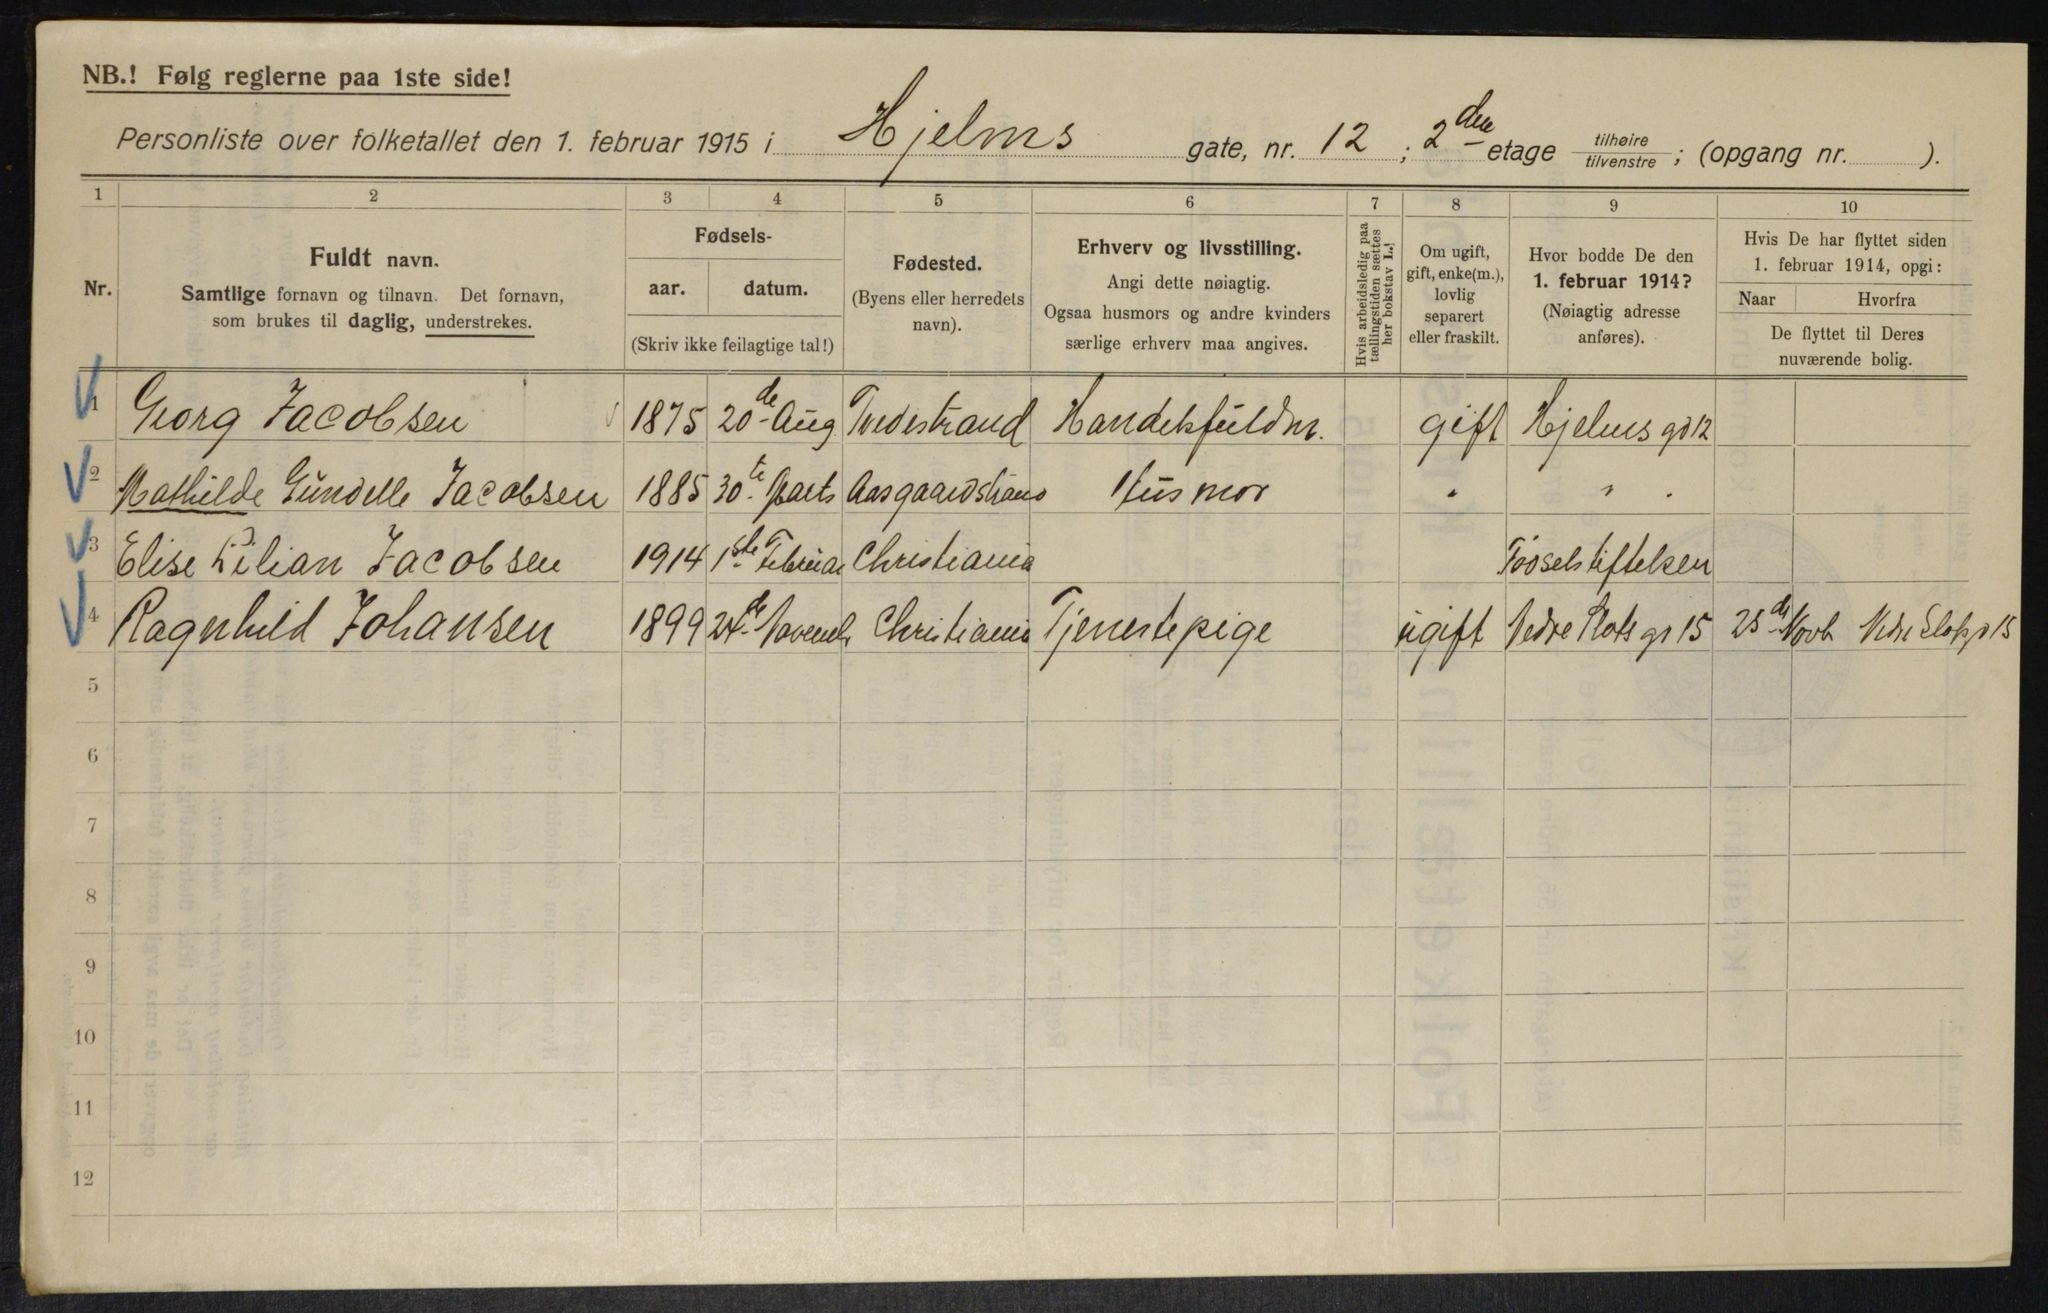 NB.! Følg reglerne paa 1ste side!
Personliste over folketallet den 1. februar 1915 i Hjelms gate, nr. 12 ; 2den etage tilhøire tilvenstre ; (opgang nr. ).
1 2 3 4 5 6 7 8 9 10
Nr.
Fuldt navn.
Samtlige fornavn og tilnavn. Det fornavn,
som brukes til daglig, understrekes.
Fødsels-
aar. datum.
(Skriv ikke feilagtige tal!)
Fødested.
(Byens eller herredets
navn).
Erhverv og livsstilling.
Angi dette nøiagtig.
Ogsaa husmors og andre kvinders
særlige erhverv maa angives.
Hvis arbeidsledig paa
tællingstiden sættes
her bokstav L.!
Om ugift,
gift, enke(m.),
lovlig
separert
eller fraskilt.
Hvor bodde De den
1. februar 1914?
(Nøiagtig adresse
anføres).
Hvis De har flyttet siden
1. februar 1914, opgi:
Naar Hvorfra
De flyttet til Deres
nuværende bolig.
1 Georg Jacobsen 1875 20de Aug Tvedestrand Handelsfuldm. gift Hjelms gd 12
2 Mathilde Gundelle Jacobsen 1885 30te Marts Aasgaardstrand Husmor " " "
3 Elise Lilian Jacobsen 1914 1ste Februar Christiania Fødselstiftelsen
4 Ragnhild Johansen 1899 24de Novemb Christiania Tjenestepige ugift Nedre Slots gd 15 25de Novb Ndre Slotsgd 15
5
6
7
8
9
10
11
12